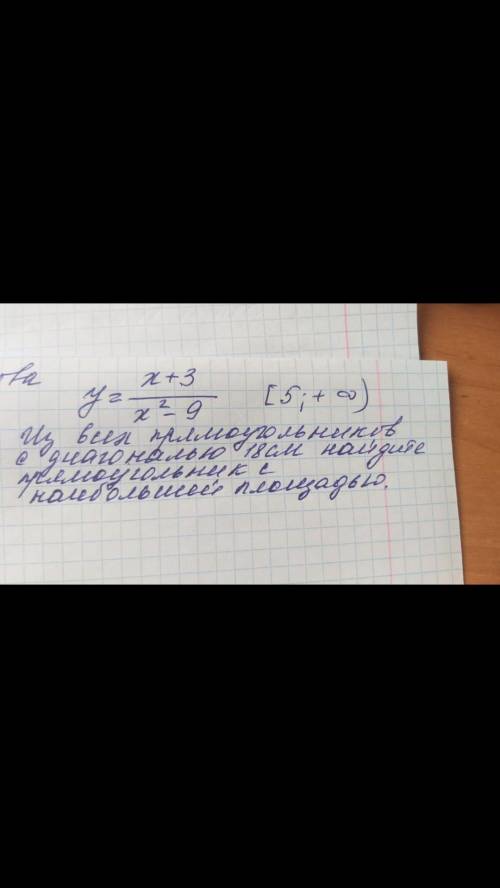 y = x+3 / x² - 9 [5; +∞)
Из всех прямоугольников
с диагональю 18см найдите
прямоугольник с
наибольшей площадью.